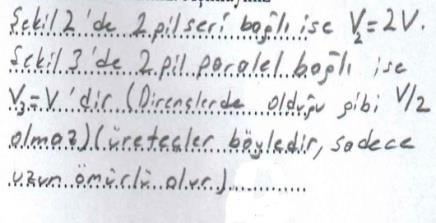 Şekil 2'de 2 pil seri bağlı ise V₂=2V.
Şekil 3'de 2 pil paralel bağlı ise
V₃=V'dir (Dirençlerde olduğu gibi V/2
olmaz) (üreteçler böyledir, sadece
uzun ömürlü olur)